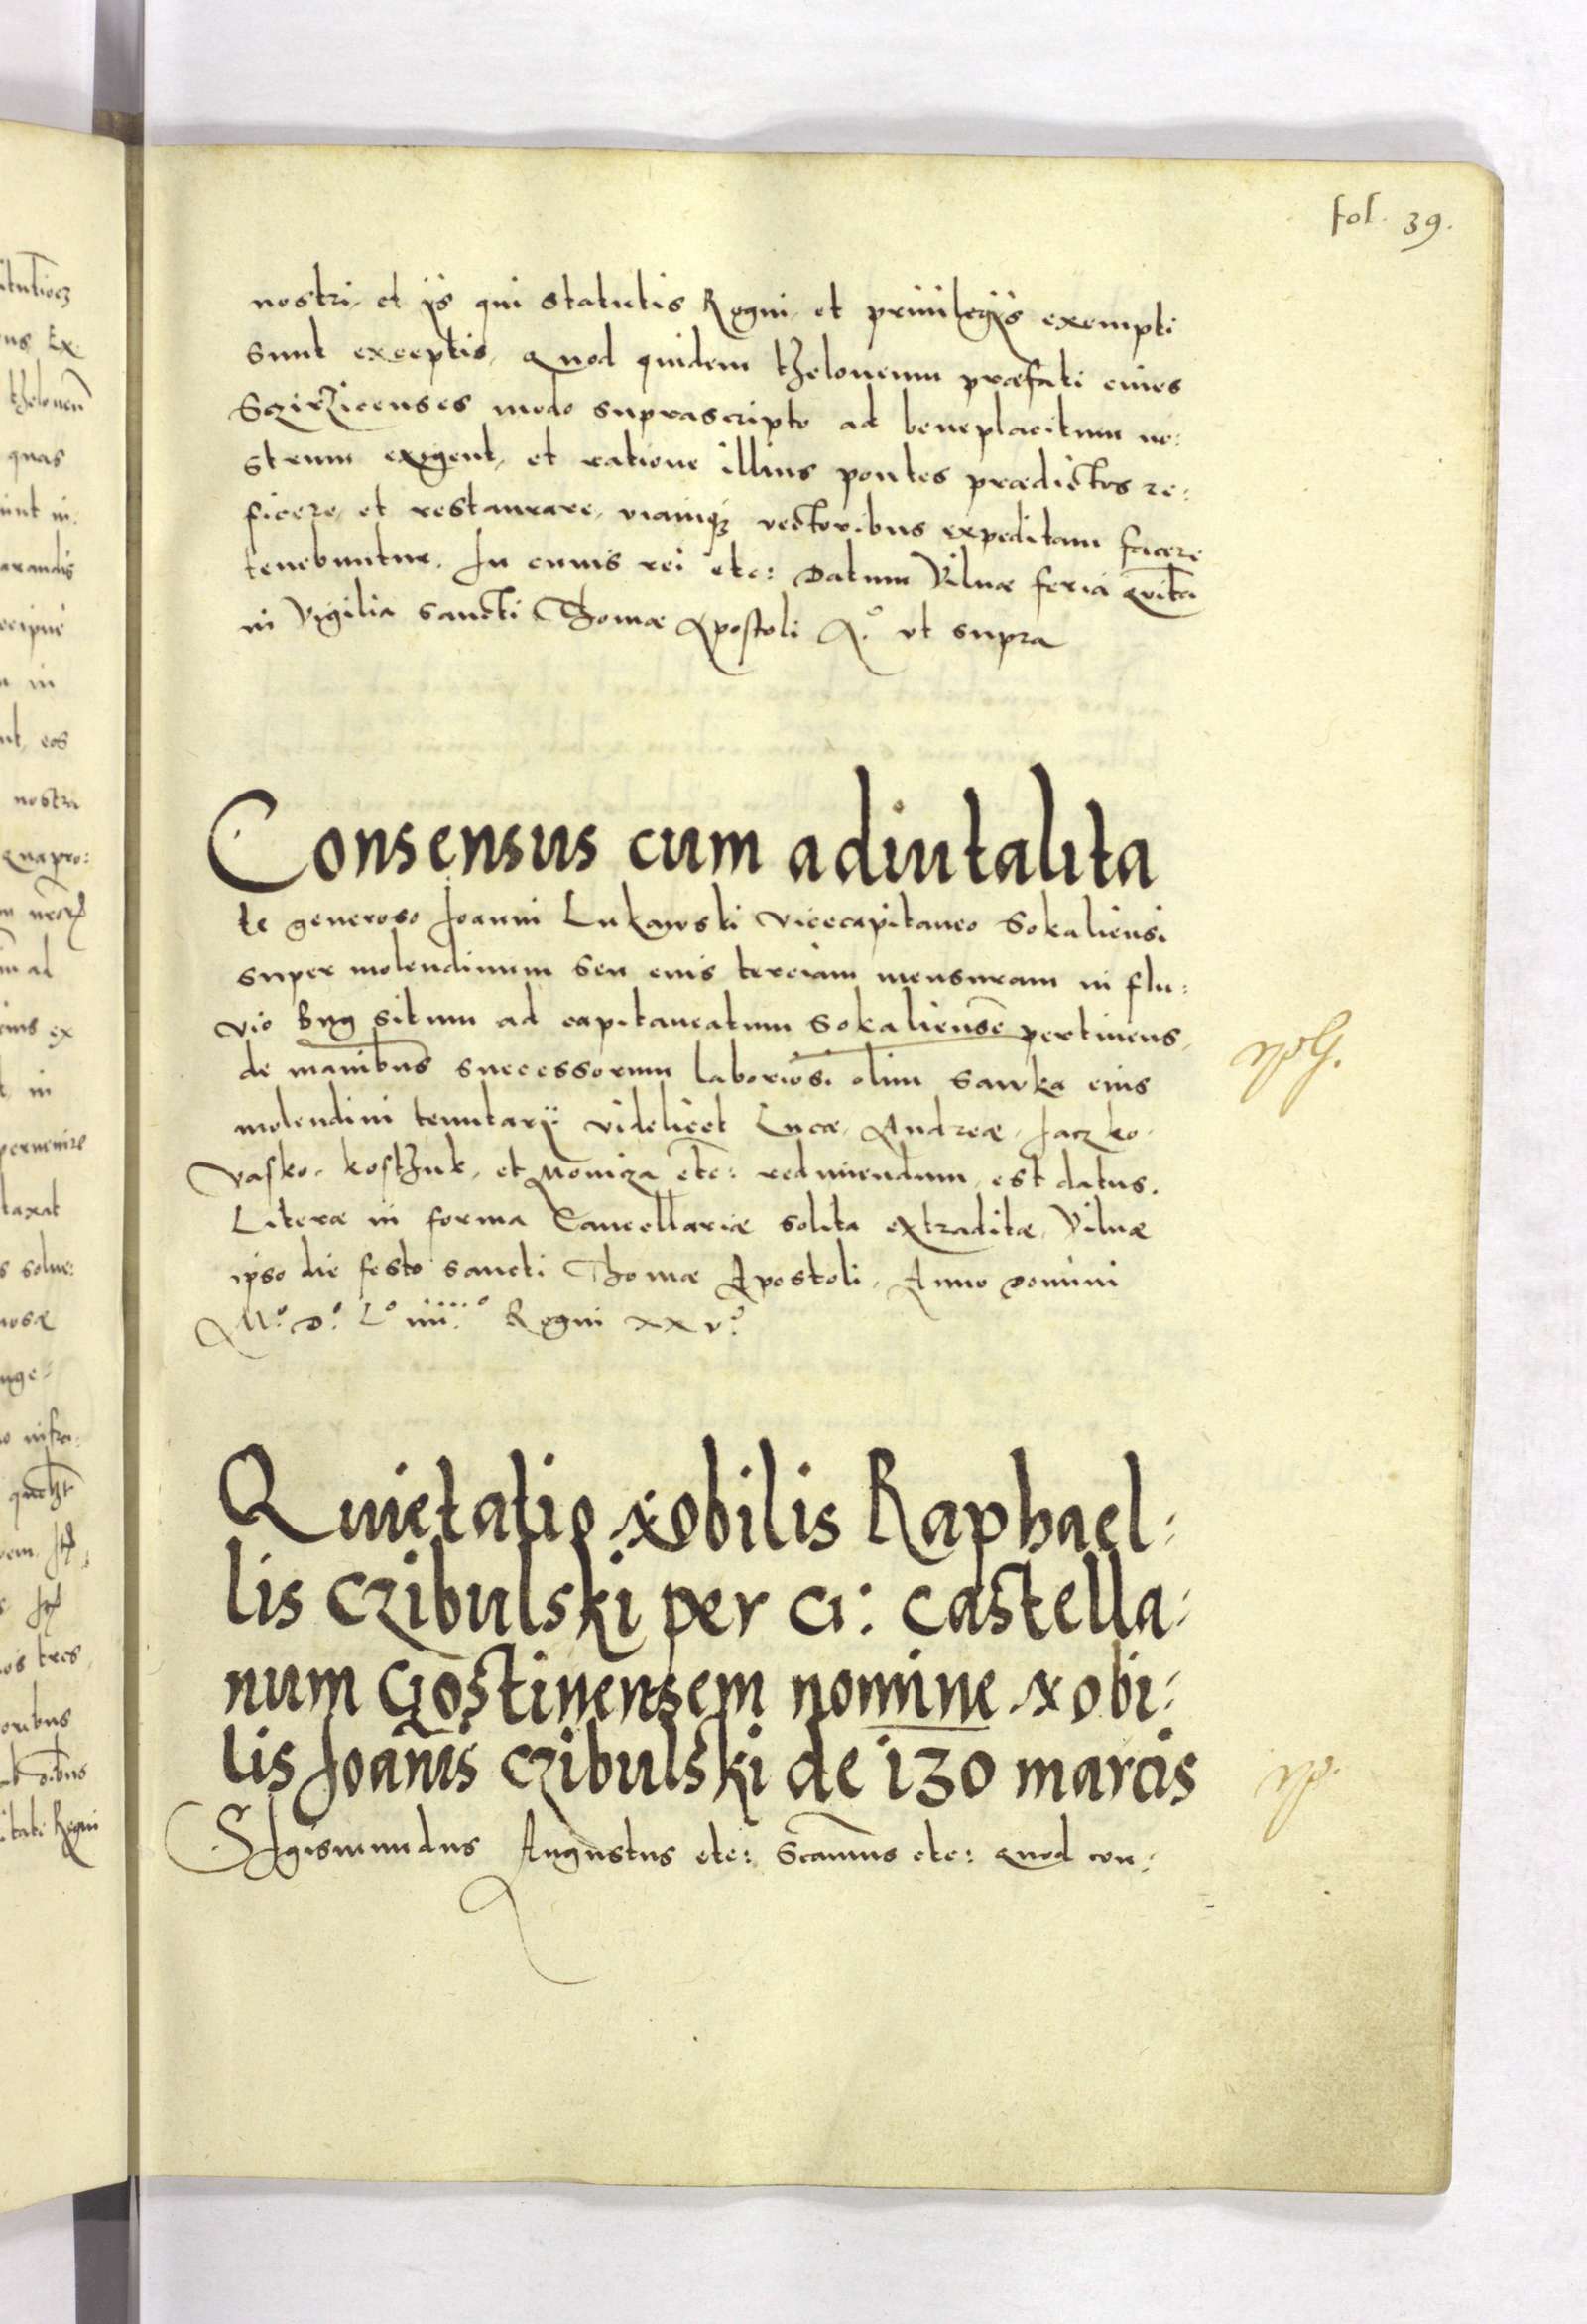 fol. 39.
nostri, et ijs qui statutis Regni, et priuilegijs exempti
sunt exceptis, Quod quidem theloneum præfati ciues
Szirzicenses modo suprascripto ad beneplacitum no:
strum exigent, et ratione illius pontes prædictos re:
ficere, et restaurare, viamq3 vectoribus expeditam facere
tenebuntur. In cuius rei etc: Datum Vilnæ feria Qvīta
in Vigilia Sancti Thomæ Apostoli A.º vt supra
Consensus cum aduitalita
te generoso Joanni Lukawski Vicecapitaneo Sokaliensi
super molendinum seu eius terciam mensuram in flu:
vio Bug situm ad capitaneatum Sokaliensē pertinens,
de manibus successorum laboriosi olim Sawka eius
molendini tenutarij videlicet Lucæ, Andreæ, Jaczko,
Vasko, Kosthuk, et Moniza etc: redimendum, est datus.
Literæ in forma Cancellariæ solita extraditæ, Vilnæ
ipso die festo sancti Thomæ Apostoli, Anno Domini
M.º D.º L.º iiii.º Regni xxv.º
Quietatio Nobilis Raphael:
lis Czibulski per G: Castella:
num Gostinensem nomine Nobi:
lis Joānis Czibulski de 130 marcis
Sigismundus Augustus etc: Scamus etc: Quod con: